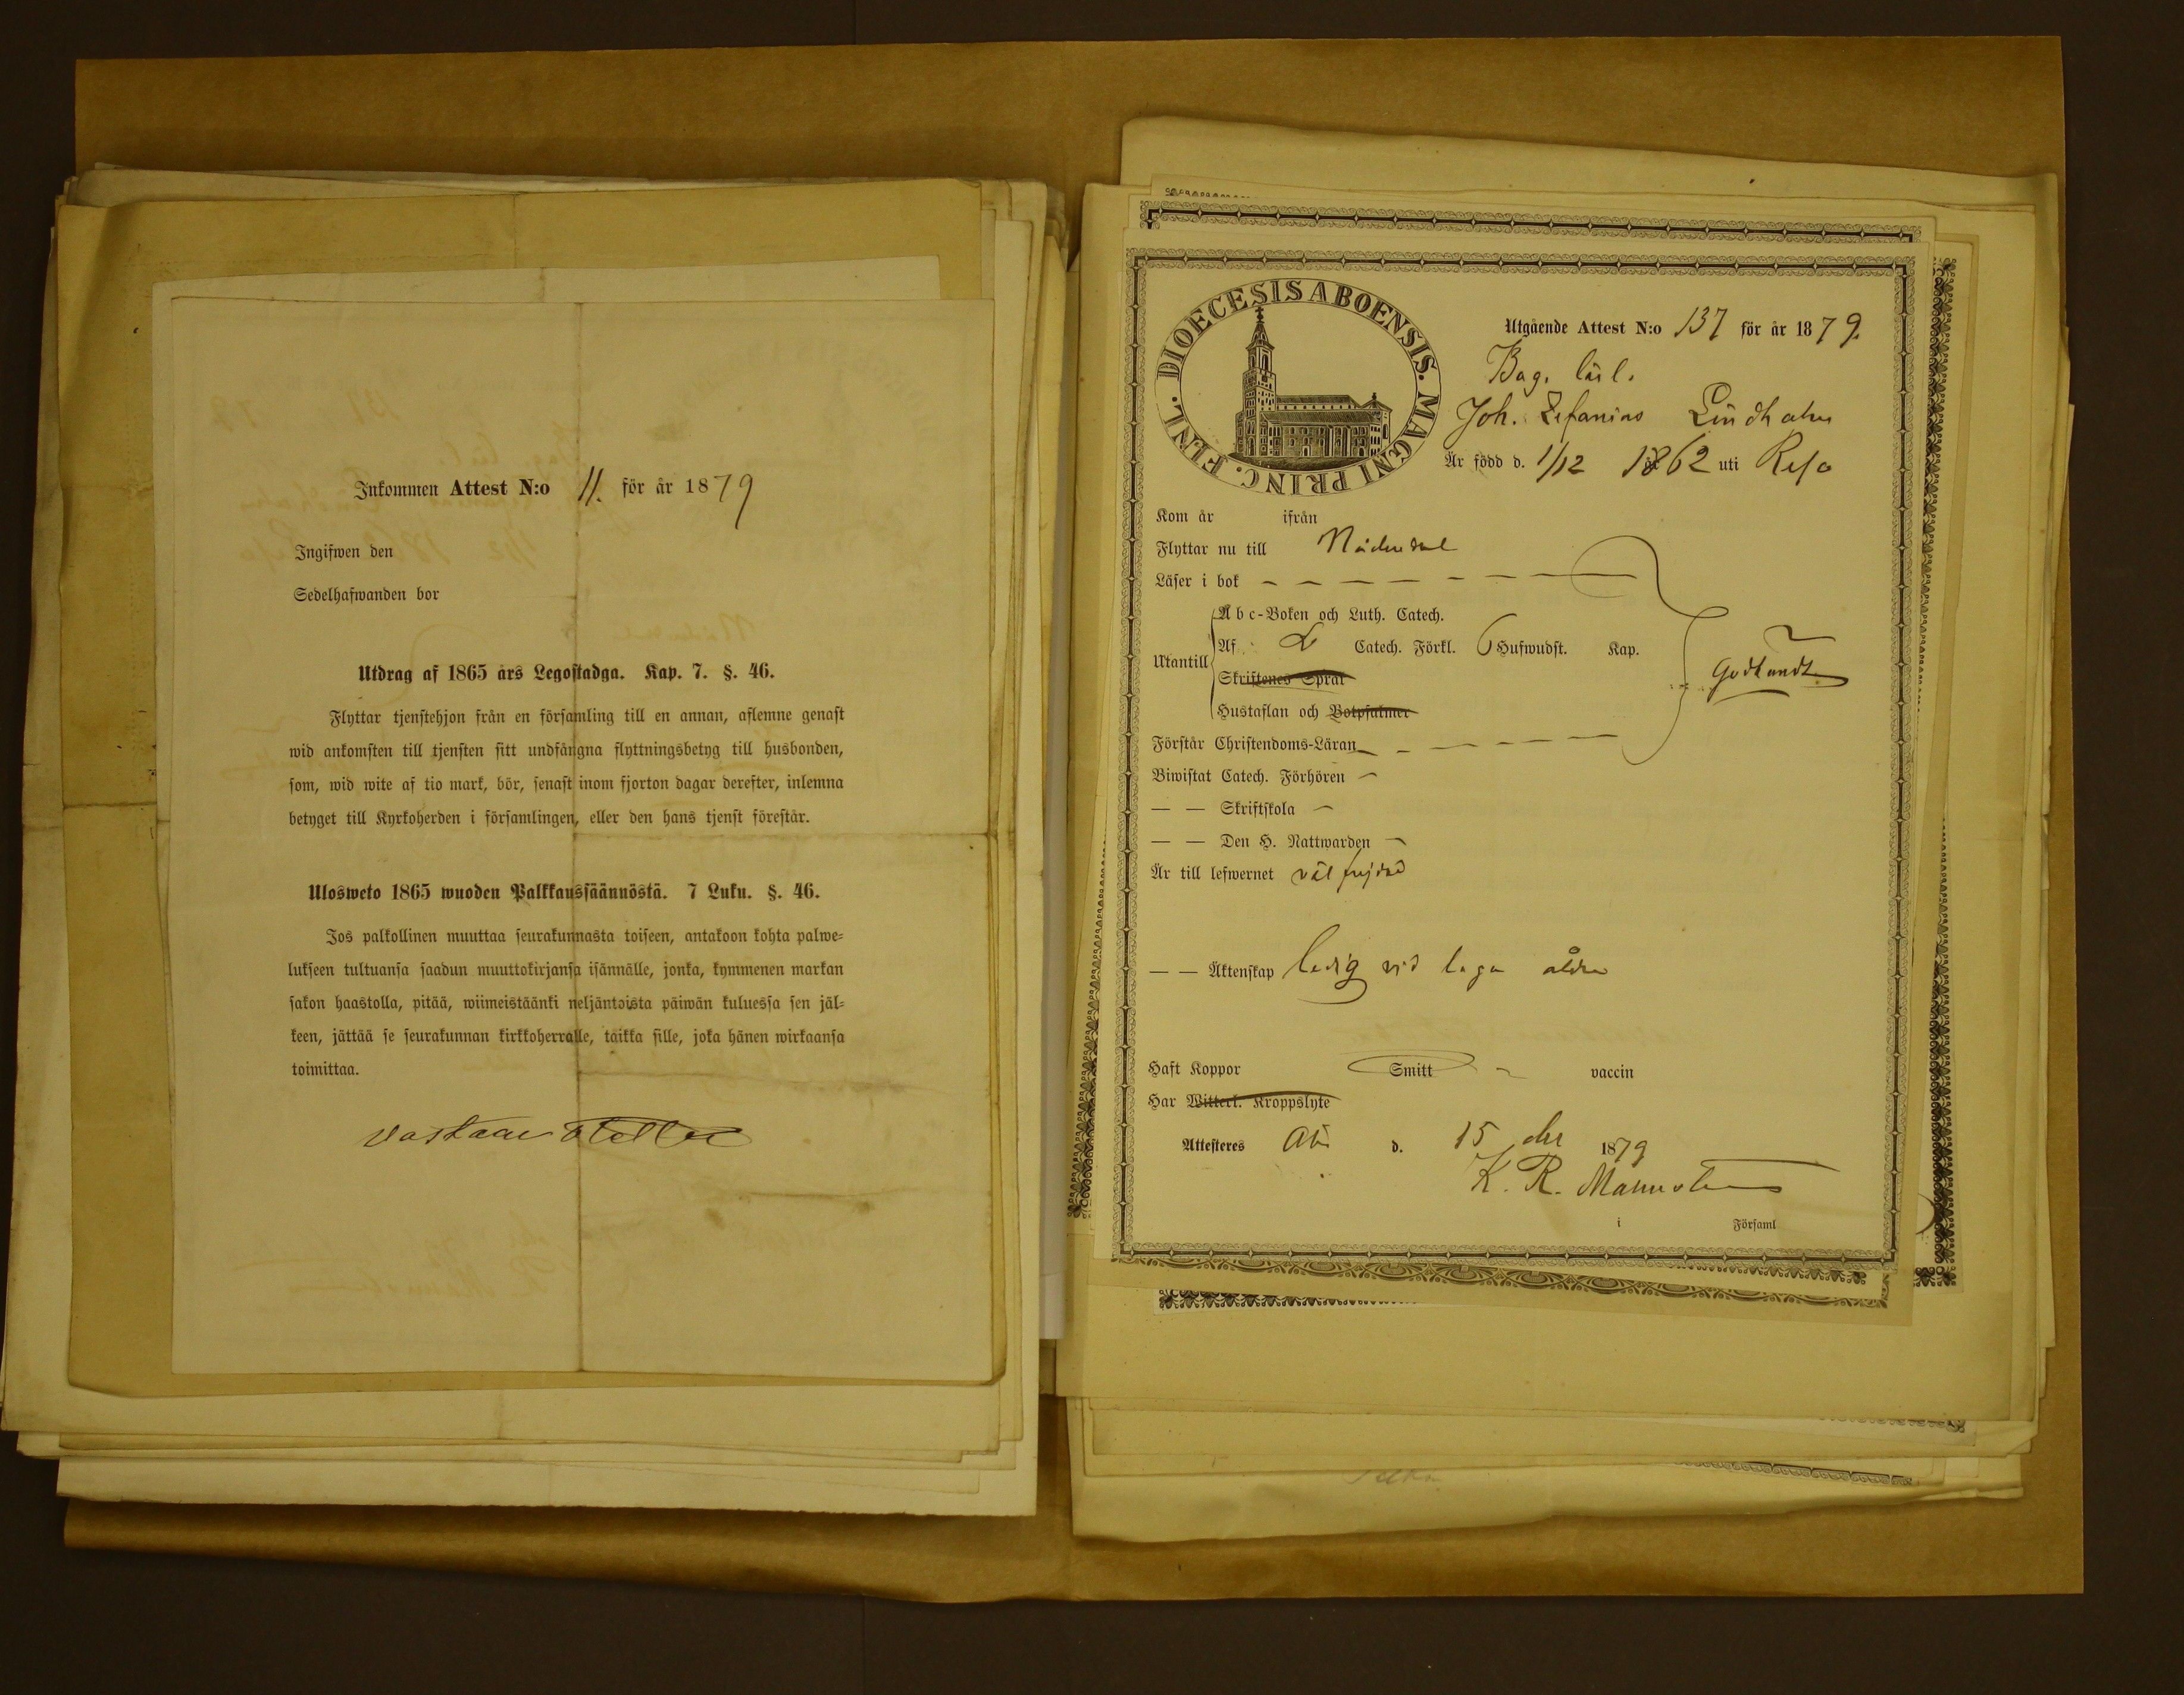 Inkommen Attest N:o 11. för år 1879
Ingifwen den
Sedelhafwanden bor
Utdrag af 1865 års Legostadga. Kap. 7. §. 46.
Flyttar tjenstehjon från en församling till en annan, aflemne genast
wid ankomsten till tjensten sitt undfångna flyttningsbetyg till husbonden,
som, wid wite af tio mark, bör, senast inom fjorton dagar derefter, inlemna
betyget till Kyrkoherden i församlingen, eller den hans tjenst förestår.
Ulosweto 1865 wuoden Palkkaussäännöstä. 7 Luku. §. 46.
Jos palkollinen muuttaa seurakunnasta toiseen, antakoon kohta palwe=
lukseen tultuansa saadun muuttokirjansa isännälle, jonka, kymmenen markan
sakon haastolla, pitää, wiimeistäänki neljäntoista päiwän kuluessa sen jäl=
keen, jättää se seurakunnan kirkkoherralle, taikka sille, joka hänen wirkaansa
toimittaa.
DIOECESIS ABOENSIS. MAGNI PRINC. FINL.
Utgående Attest N:o 137 för år 1879.
Bag. lärl.
Joh. Zefanias Lindholm
Är född d. 1/12 1862 uti Reso
Kom år ifrån
Flyttar nu till Nådendal
Läser i bok
Abc-Boken och Luth. Catech.
Utantill Af Catech. Förkl. 6 Hufwudst. Kap.
Skriftenes Språk
Hustaflan och Botpsalmer
Godkändt
Förstår Christendoms-Läran
Biwistat Catech. Förhören
— — Skriftskola
— — Den H. Nattwarden
Är till lefwernet väl frejdad
— — Äktenskap ledig vid laga ålder
Haft Koppor Smitt vaccin
Har Witterl. Kroppslyte
Attesteres Åbo d. 15 1879
K. R. Malmström
i Församl